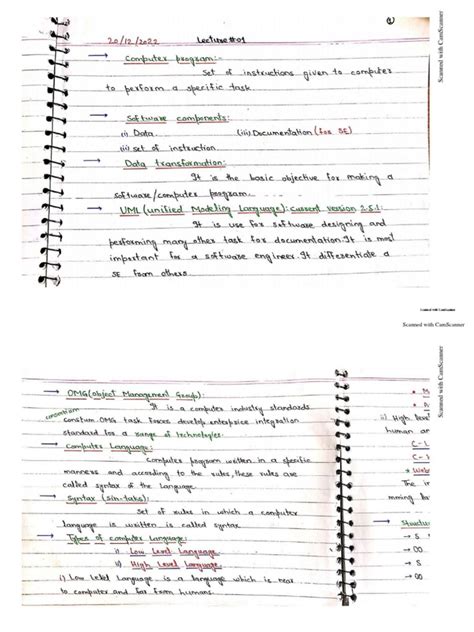 20/12/2022 Lecture #01
→ Computer program:-
Set of instructions given to computer
to perform a specific task.
→ Software components:
(i) Data (iii) Documentation (for SE)
(ii) set of instruction
→ Data transformation:-
It is the basic objective for making a
software/computer program.
→ UML (unified Modeling Language): current version 2.5.1:
It is use for software designing and
performing many other task for documentation. It is most
important for a software engineer. It differentiate a
SE from others.
Scanned with CamScanner
Scanned with CamScanner
Scanned with CamScanner
→ OMG (object Management Group):
It is a computer industry standards
consortium
OMG task Forces develop enterprise integration
standard for a range of technologies.
→ Computer Language:
Computer program written in a specific
manners and according to the rules, these rules are
called syntax of the Language.
→ Syntax (sin-taks):
Set of rules in which a computer
language is written is called syntax
→ Types of computer Language:
i) Low Level Language
ii) High Level Language
i) Low Level Language is a language which is near
to computer and far from humans.
ii) High
human
Structu
Scanned with CamScanner